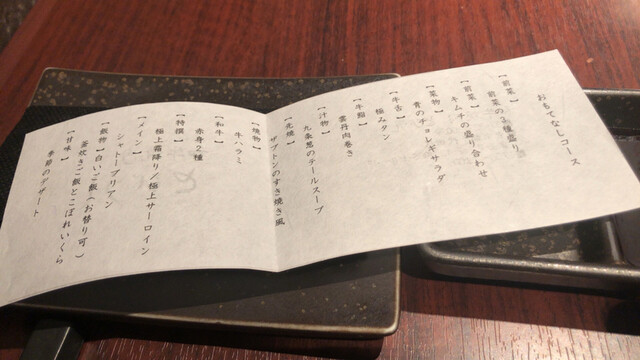 おもてなしコース
【前菜】
前菜の3種盛り
【前菜】
キムチの盛り合わせ
【菜物】
青のチョレギサラダ
【牛舌】
極みタン
【牛脂】
雲丹肉巻き
【汁物】
九条葱のテールスープ
【先焼】
ザブトンのすき焼き風
【焼物】
牛ハラミ
【和牛】
赤身2種
【特撰】
極上霜降り/極上サーロイン
【メイン】
シャトーブリアン
【飯物】白いご飯(お替り可)
釜炊きご飯とこぼれいくら
【甘味】
季節のデザート